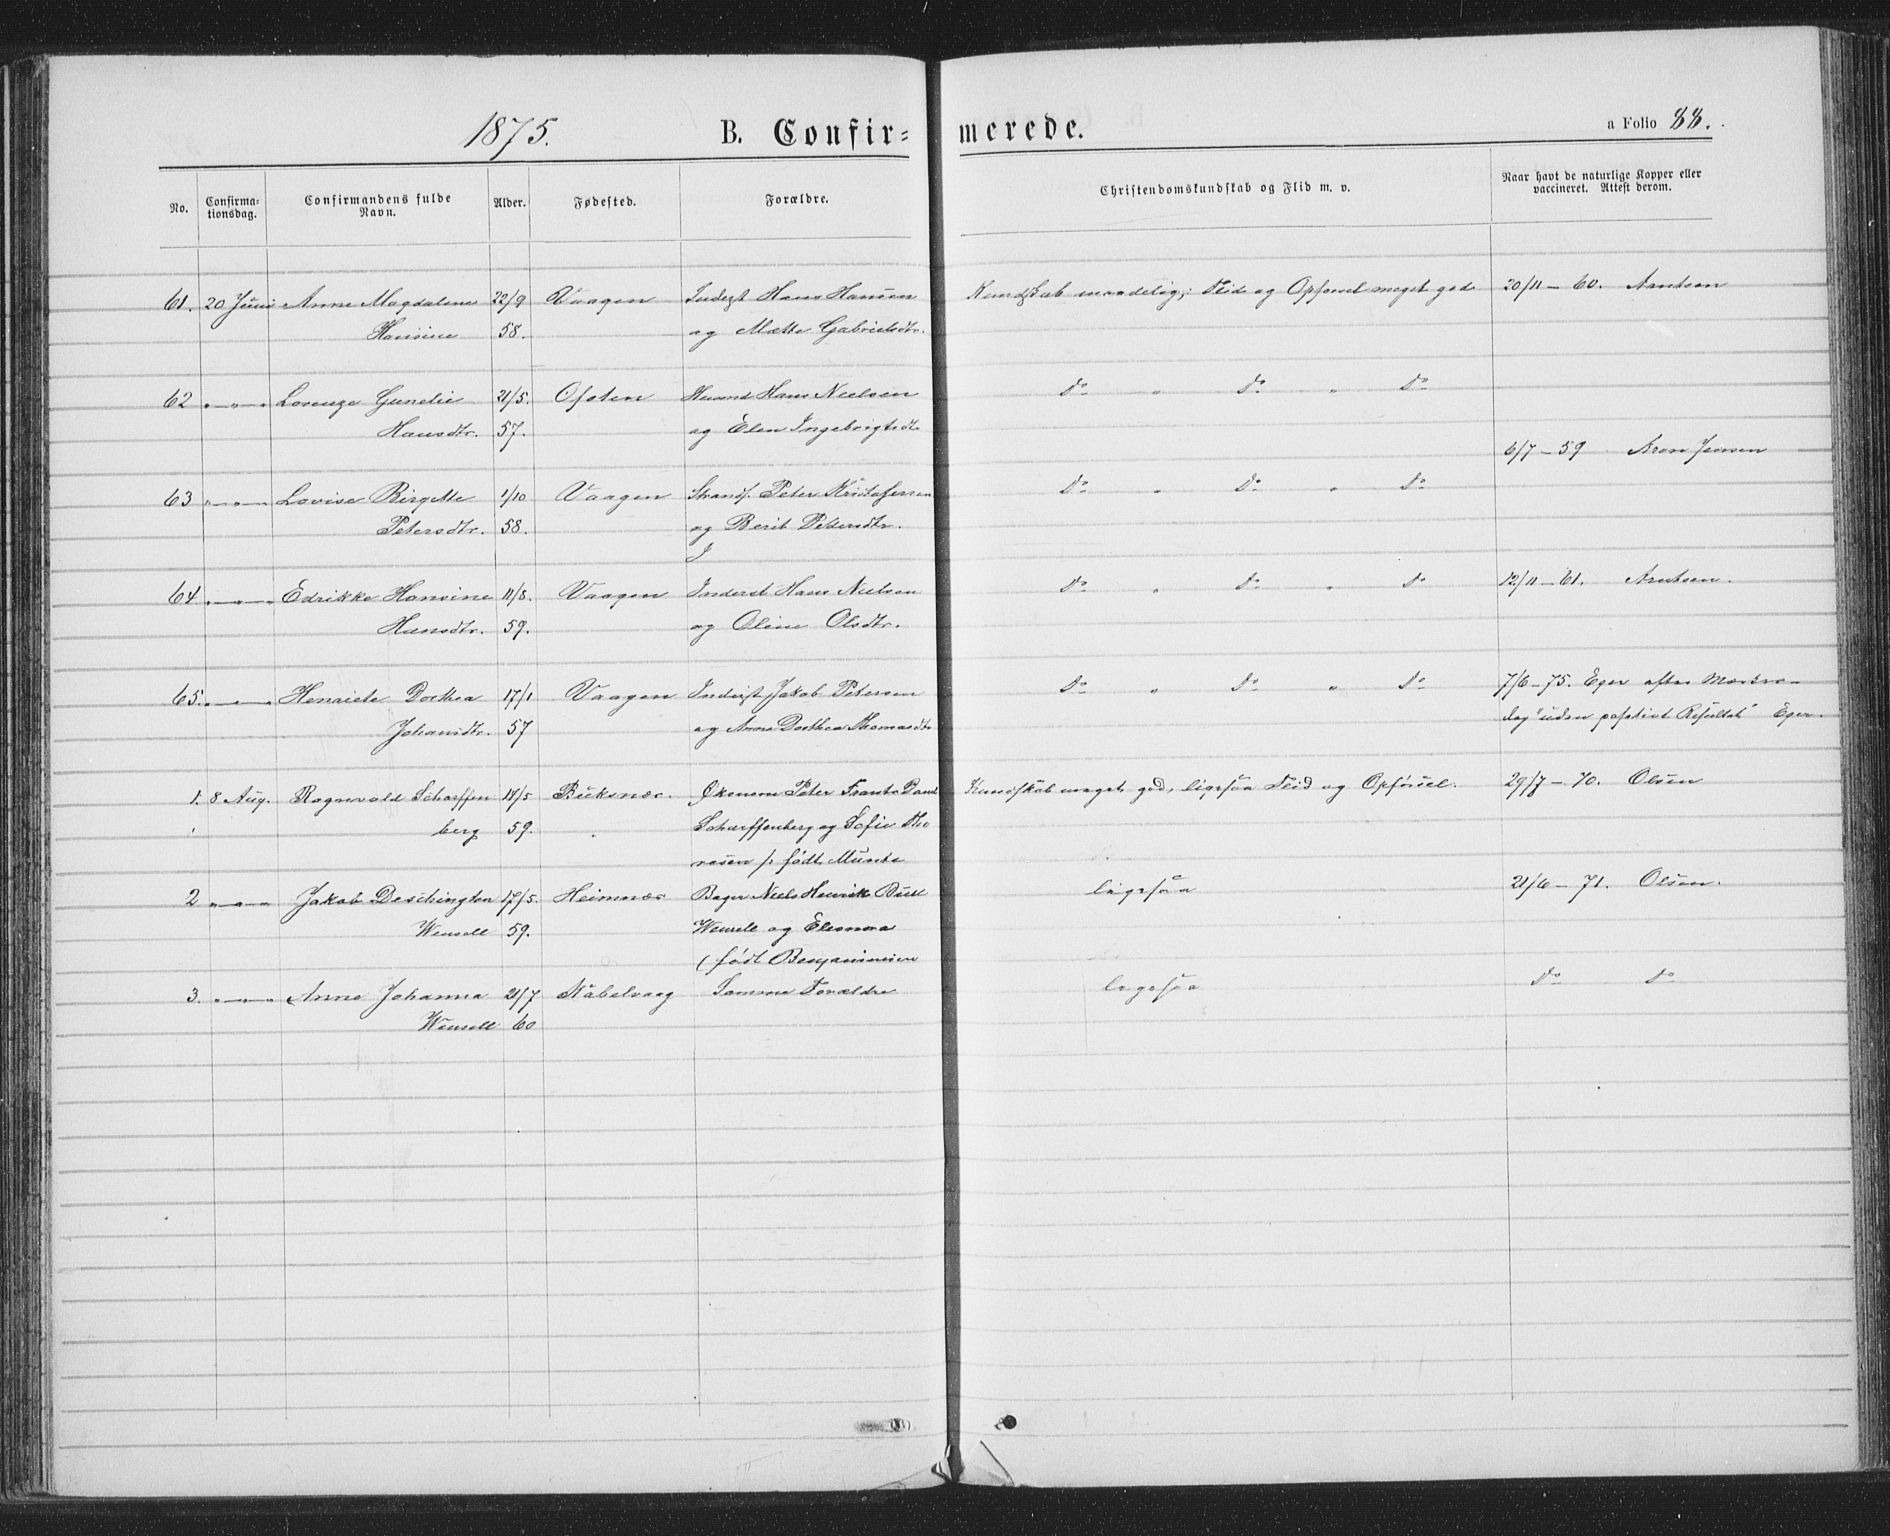 1875. B. Confir= merede. a Folio 88.
No. Confirma-tionsdag. Confirmandens fulde Navn. Alder. Fødested. Forældre. Christendomskundskab og Flid m. v. Naar havt de naturlige Kopper eller vaccineret. Attest derom.
61. 20 Juni Anne Magdalene 22/9 Vaagen Inderst Hans Hansen Kundskab maadelig; Flid og Opførsel meget god 20/11 - 60. Arntsen
Hansine 58. og Mætte Gabrielsdtr.
62 " " " Lorenze Gunelie 21/5. Ofoten Huusmd Hans Nielsen do " do " do
Hansdtr. 57. og Elen Ingebrigtsdtr
6/7 - 59 Aron Jensen
63 " " " Lovise Birgitte 1/10 Vaagen Strands. Peter Kristofersen do " do " do
Petersdtr. 58. og Berit Petersdtr.
64 " " " Edrikke Hansine 11/8. Vaagen Inderst Hans Nielsen do " do " do 12/11 - 61. Arntsen.
Hansdtr. 59. og Oline Olsdtr.
65. " " " Henriete Dorthea 17/1 Vaagen Inderst Jakob Petersen do " do " do 7/6 - 75. Eger efter
Johansdtr. 57 og Anne Dorthea Thomasdtr "uden positivt Resultat" Eger.
1. 8 Aug. Ragnvald Scharffen 18/5 Buksnæs. Økonom Peter Frants Kundskab meget god, ligesaa Flid og Opførsel. 29/7 - 70. Olsen
berg 59. Scharffenberg og Sofie The
resen f: født Munthe
2 " " " Jakob Deschington 17/5. Heimnæs Bager Niels Henrik Bull ligesaa 21/6 - 71. Olsen.
Wensell 59. Wensell og Eleonora
(født Benjaminsen
3. " " " Anne Johanna 21/7 Kabelvaag Samme Forældre ligesaa do do
Wensell 60